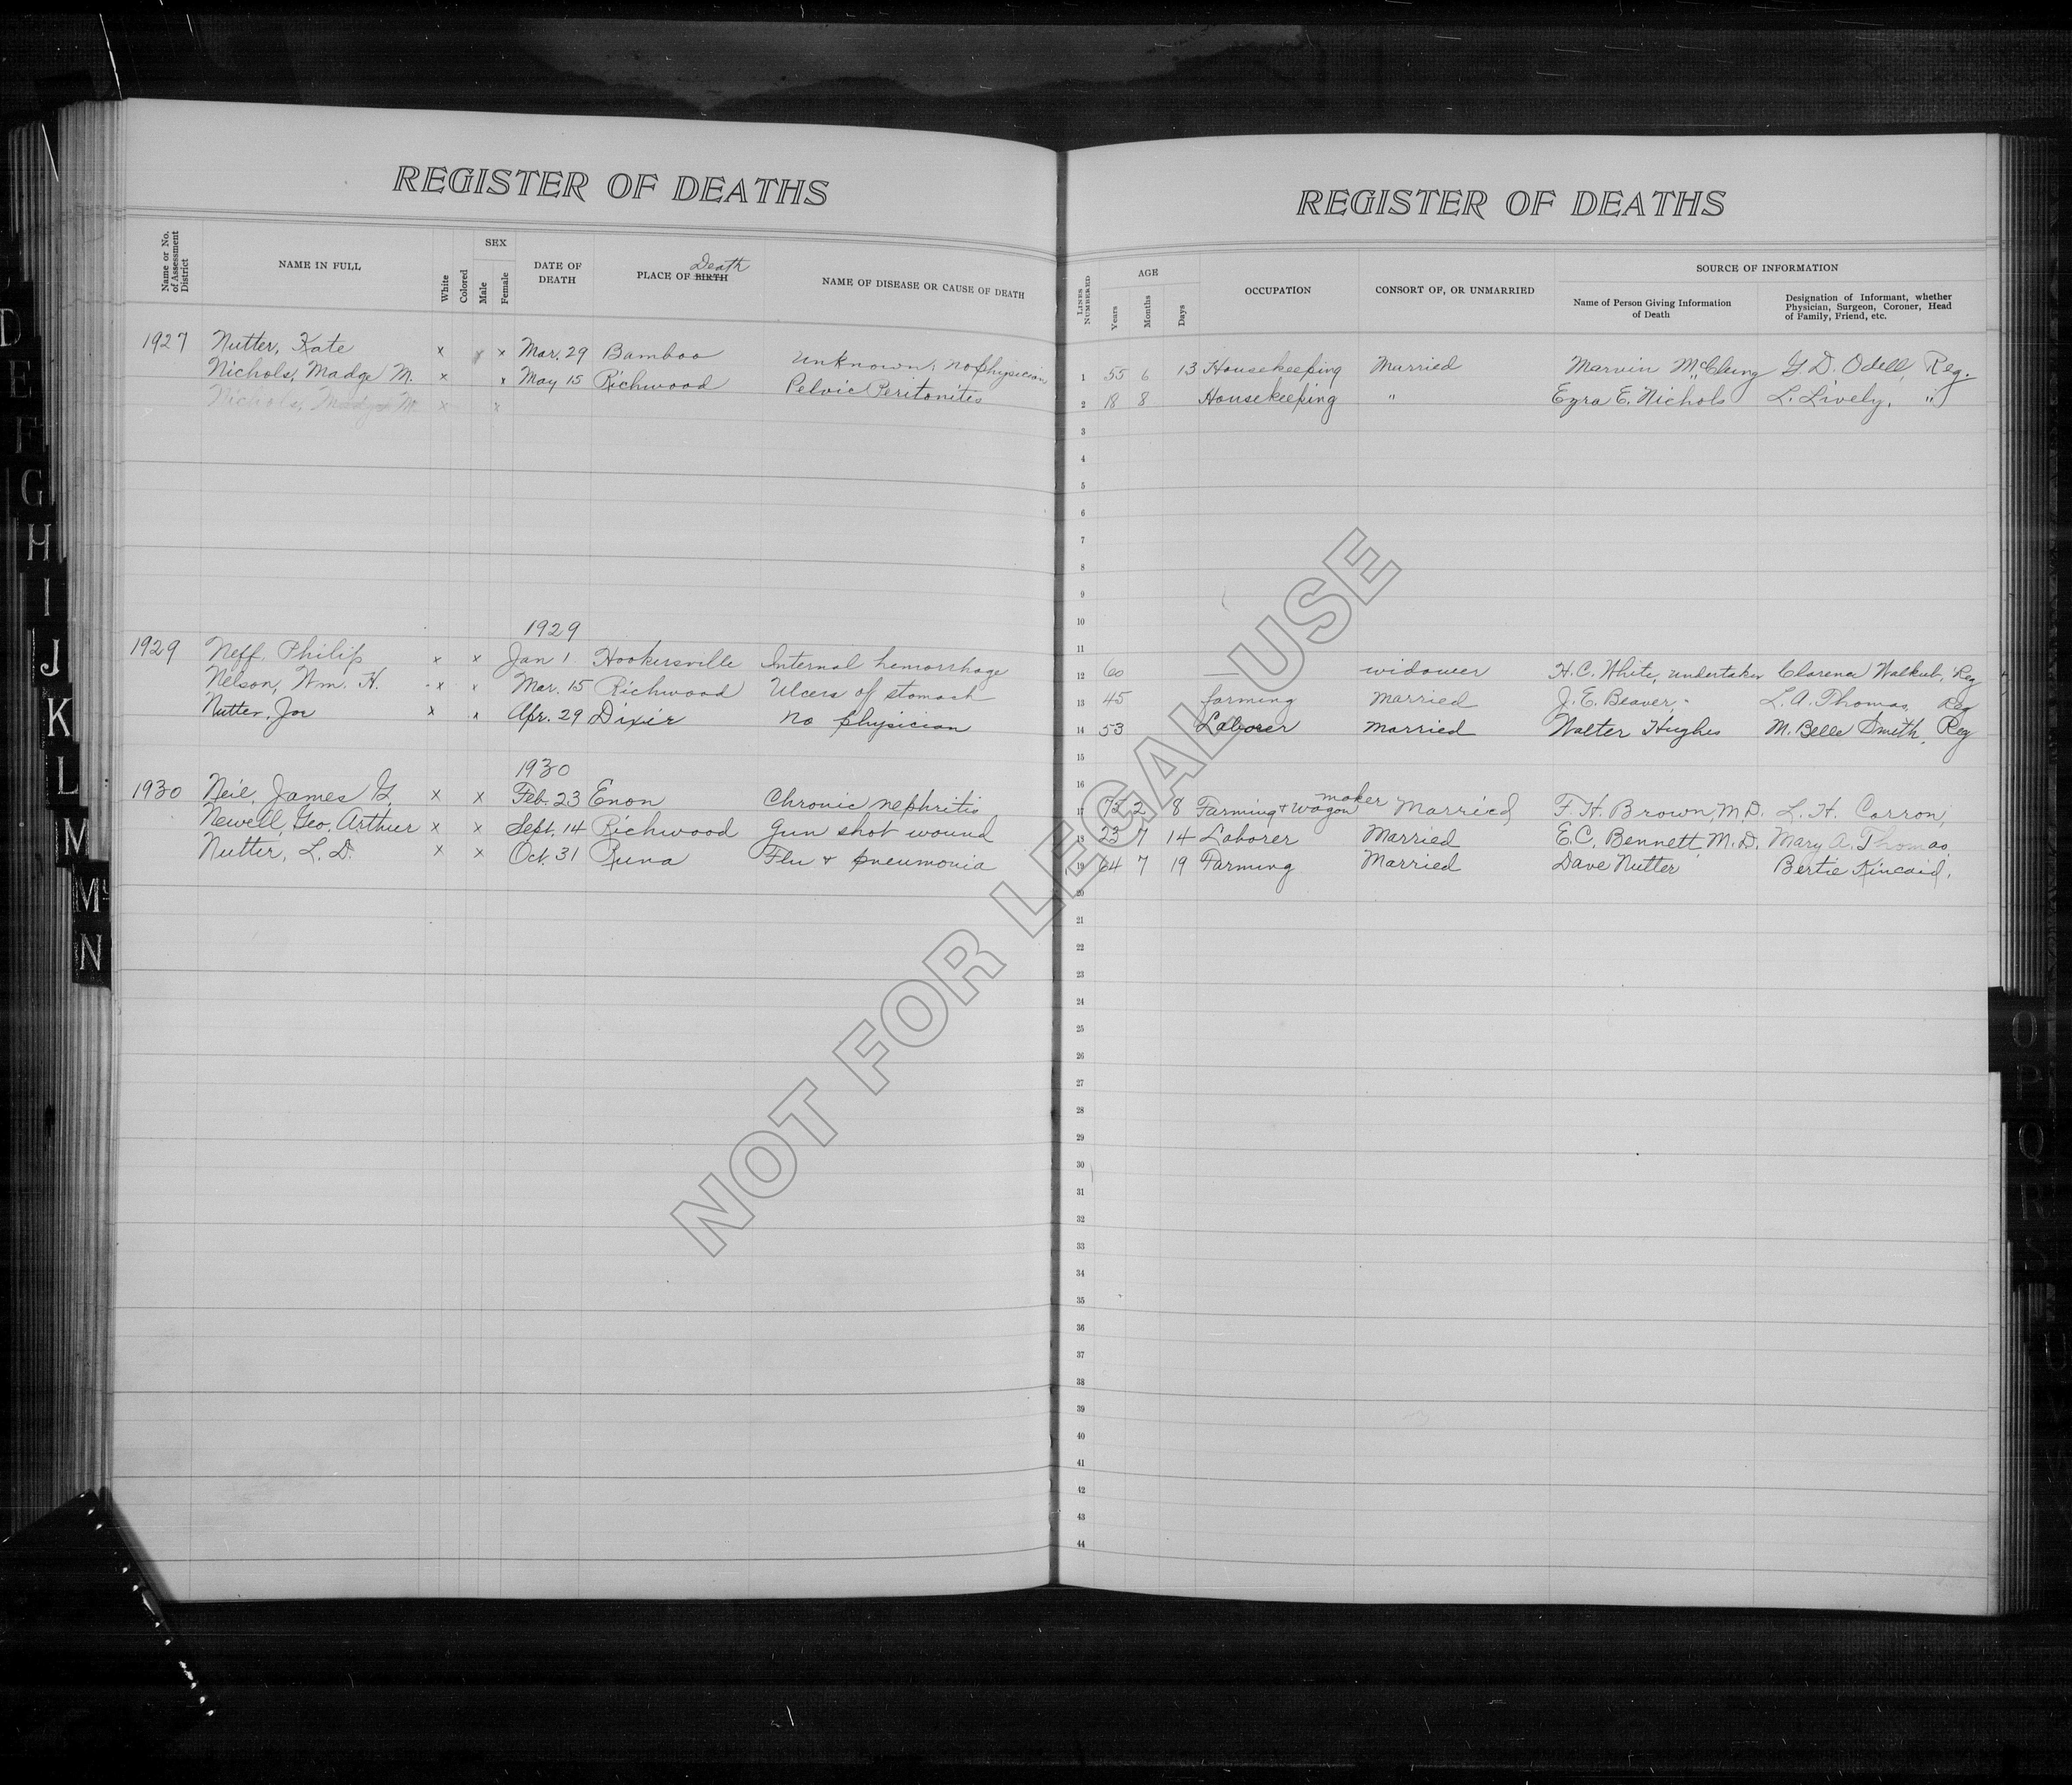 REGISTER OF DEATHS
Name or No. of Assessment District
NAME IN FULL
White
Colored
SEX
Male
Female
DATE OF DEATH
Death
PLACE OF BIRTH
NAME OF DISEASE OR CAUSE OF DEATH
1927 Nutter, Kate x x Mar. 29 Bamboo Unknown, no physician
Nichols, Madge M. x x May 15 Richwood Pelvic Peritonites
Nichols, Madge M. x x
1929
1929 Neff, Philip x x Jan 1. Hookersville Internal hemorrhage
Nelson, Wm. H. x x Mar. 15 Richwood Ulcers of stomach
Nutter, Joe x x Apr. 29 Dixie No physician
1930
1930 Neil, James G. x x Feb. 23 Enon Chronic nephritis
Newell, Geo. Arthur x x Sept. 14 Richwood Gun shot wound
Nutter, L. D. x x Oct. 31 Runa Flu & pneumonia
REGISTER OF DEATHS
LINES NUMBERED
AGE
Years
Months
Days
OCCUPATION
CONSORT OF, OR UNMARRIED
SOURCE OF INFORMATION
Name of Person Giving Information of Death
Designation of Informant, whether Physician, Surgeon, Coroner, Head of Family, Friend, etc.
1 55 6 13 Housekeeping Married Marvin McClung G D. Odell, Reg.
2 18 8 Housekeeping " Ezra E. Nichols L. Lively, "
3
4
5
6
7
8
9
10
11
12 60 — widower H. C. White, undertaker Clarence Walkup, Reg
13 45 farming Married J. E. Beaver, L. A. Thomas, Reg
14 53 Laborer Married Walter Hughes M. Belle Smith, Reg
15
16
17 72 2 8 Farming & Wagon maker Married F. H. Brown, M.D. L. H. Corron,
18 23 7 14 Laborer Married E. C. Bennett, M. D. Mary A. Thomas,
19 64 7 19 Farming Married Dave Nutter Bertie Kincaid,
20
21
22
23
24
25
26
27
28
29
30
31
32
33
34
35
36
37
38
39
40
41
42
43
44
NOT FOR LEGAL USE
D
E
F
G
H
I
J
K
L
M
Mc
N
O
P
Q
R
S